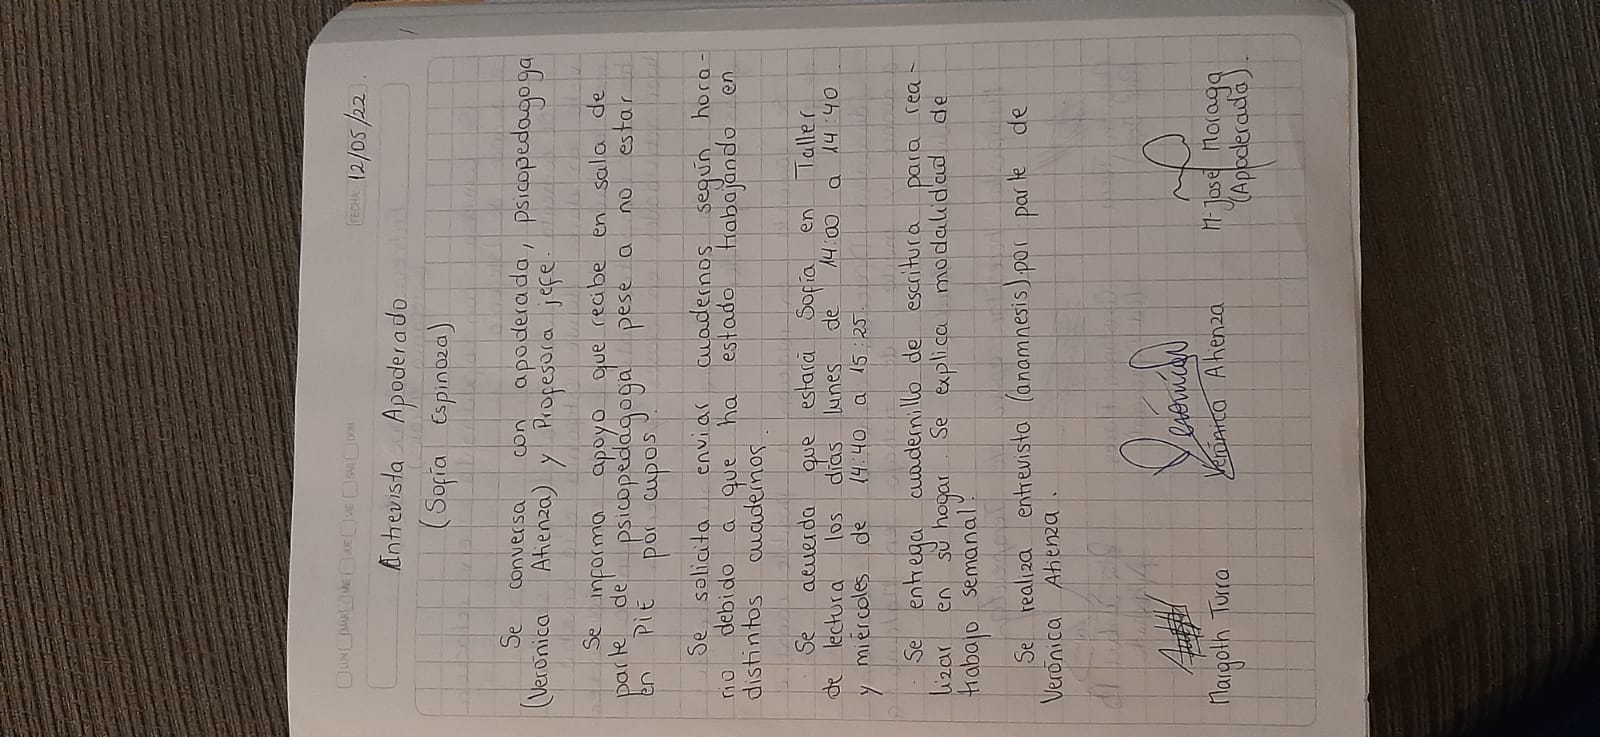 LUN MAR MIE JUE VIE SAB DOM
FECHA: 12/05/22.
Entrevista Apoderado
(Sofía Espinoza)
Se conversa con apoderada, psicopedagoga
(Verónica Atienza) y Profesora jefe.
Se informa apoyo que recibe en sala de
parte de psicopedagogía pese a no estar
en PIE por cupos.
Se solicita enviar cuadernos según hora-
rio debido a que ha estado trabajando en
distintos cuadernos.
Se acuerda que estará Sofía en Taller
de lectura los días lunes de 14:00 a 14:40
y miércoles de 14:40 a 15:25.
Se entrega cuadernillo de escritura para rea-
lizar en su hogar. Se explica modalidad de
trabajo semanal.
Se realiza entrevista (anamnesis) por parte de
Verónica Atienza.
Verónica
Margoth Turra Verónica Atienza Mª José Moraga
(Apoderada).